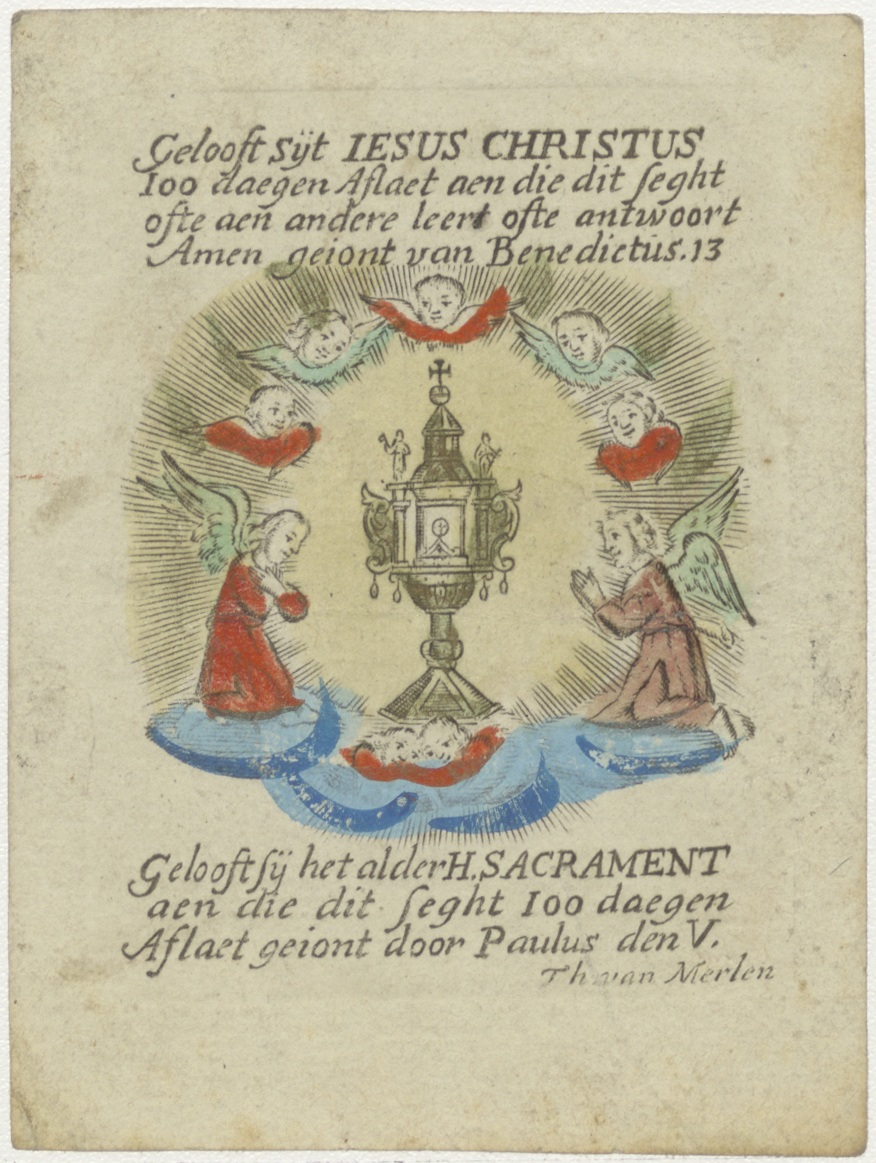 Gelooft sÿt IESUS CHRISTUS
100 daegen Aflaet aen die dit seght
ofte aen andere leert ofte antwoort
Amen geiont van Benedictüs.13
Gelooft sÿ het alder H. SACRAMENT
aen die dit seght 100 daegen
Aflaet geiont door Paulus den V.
Th. van Merlen